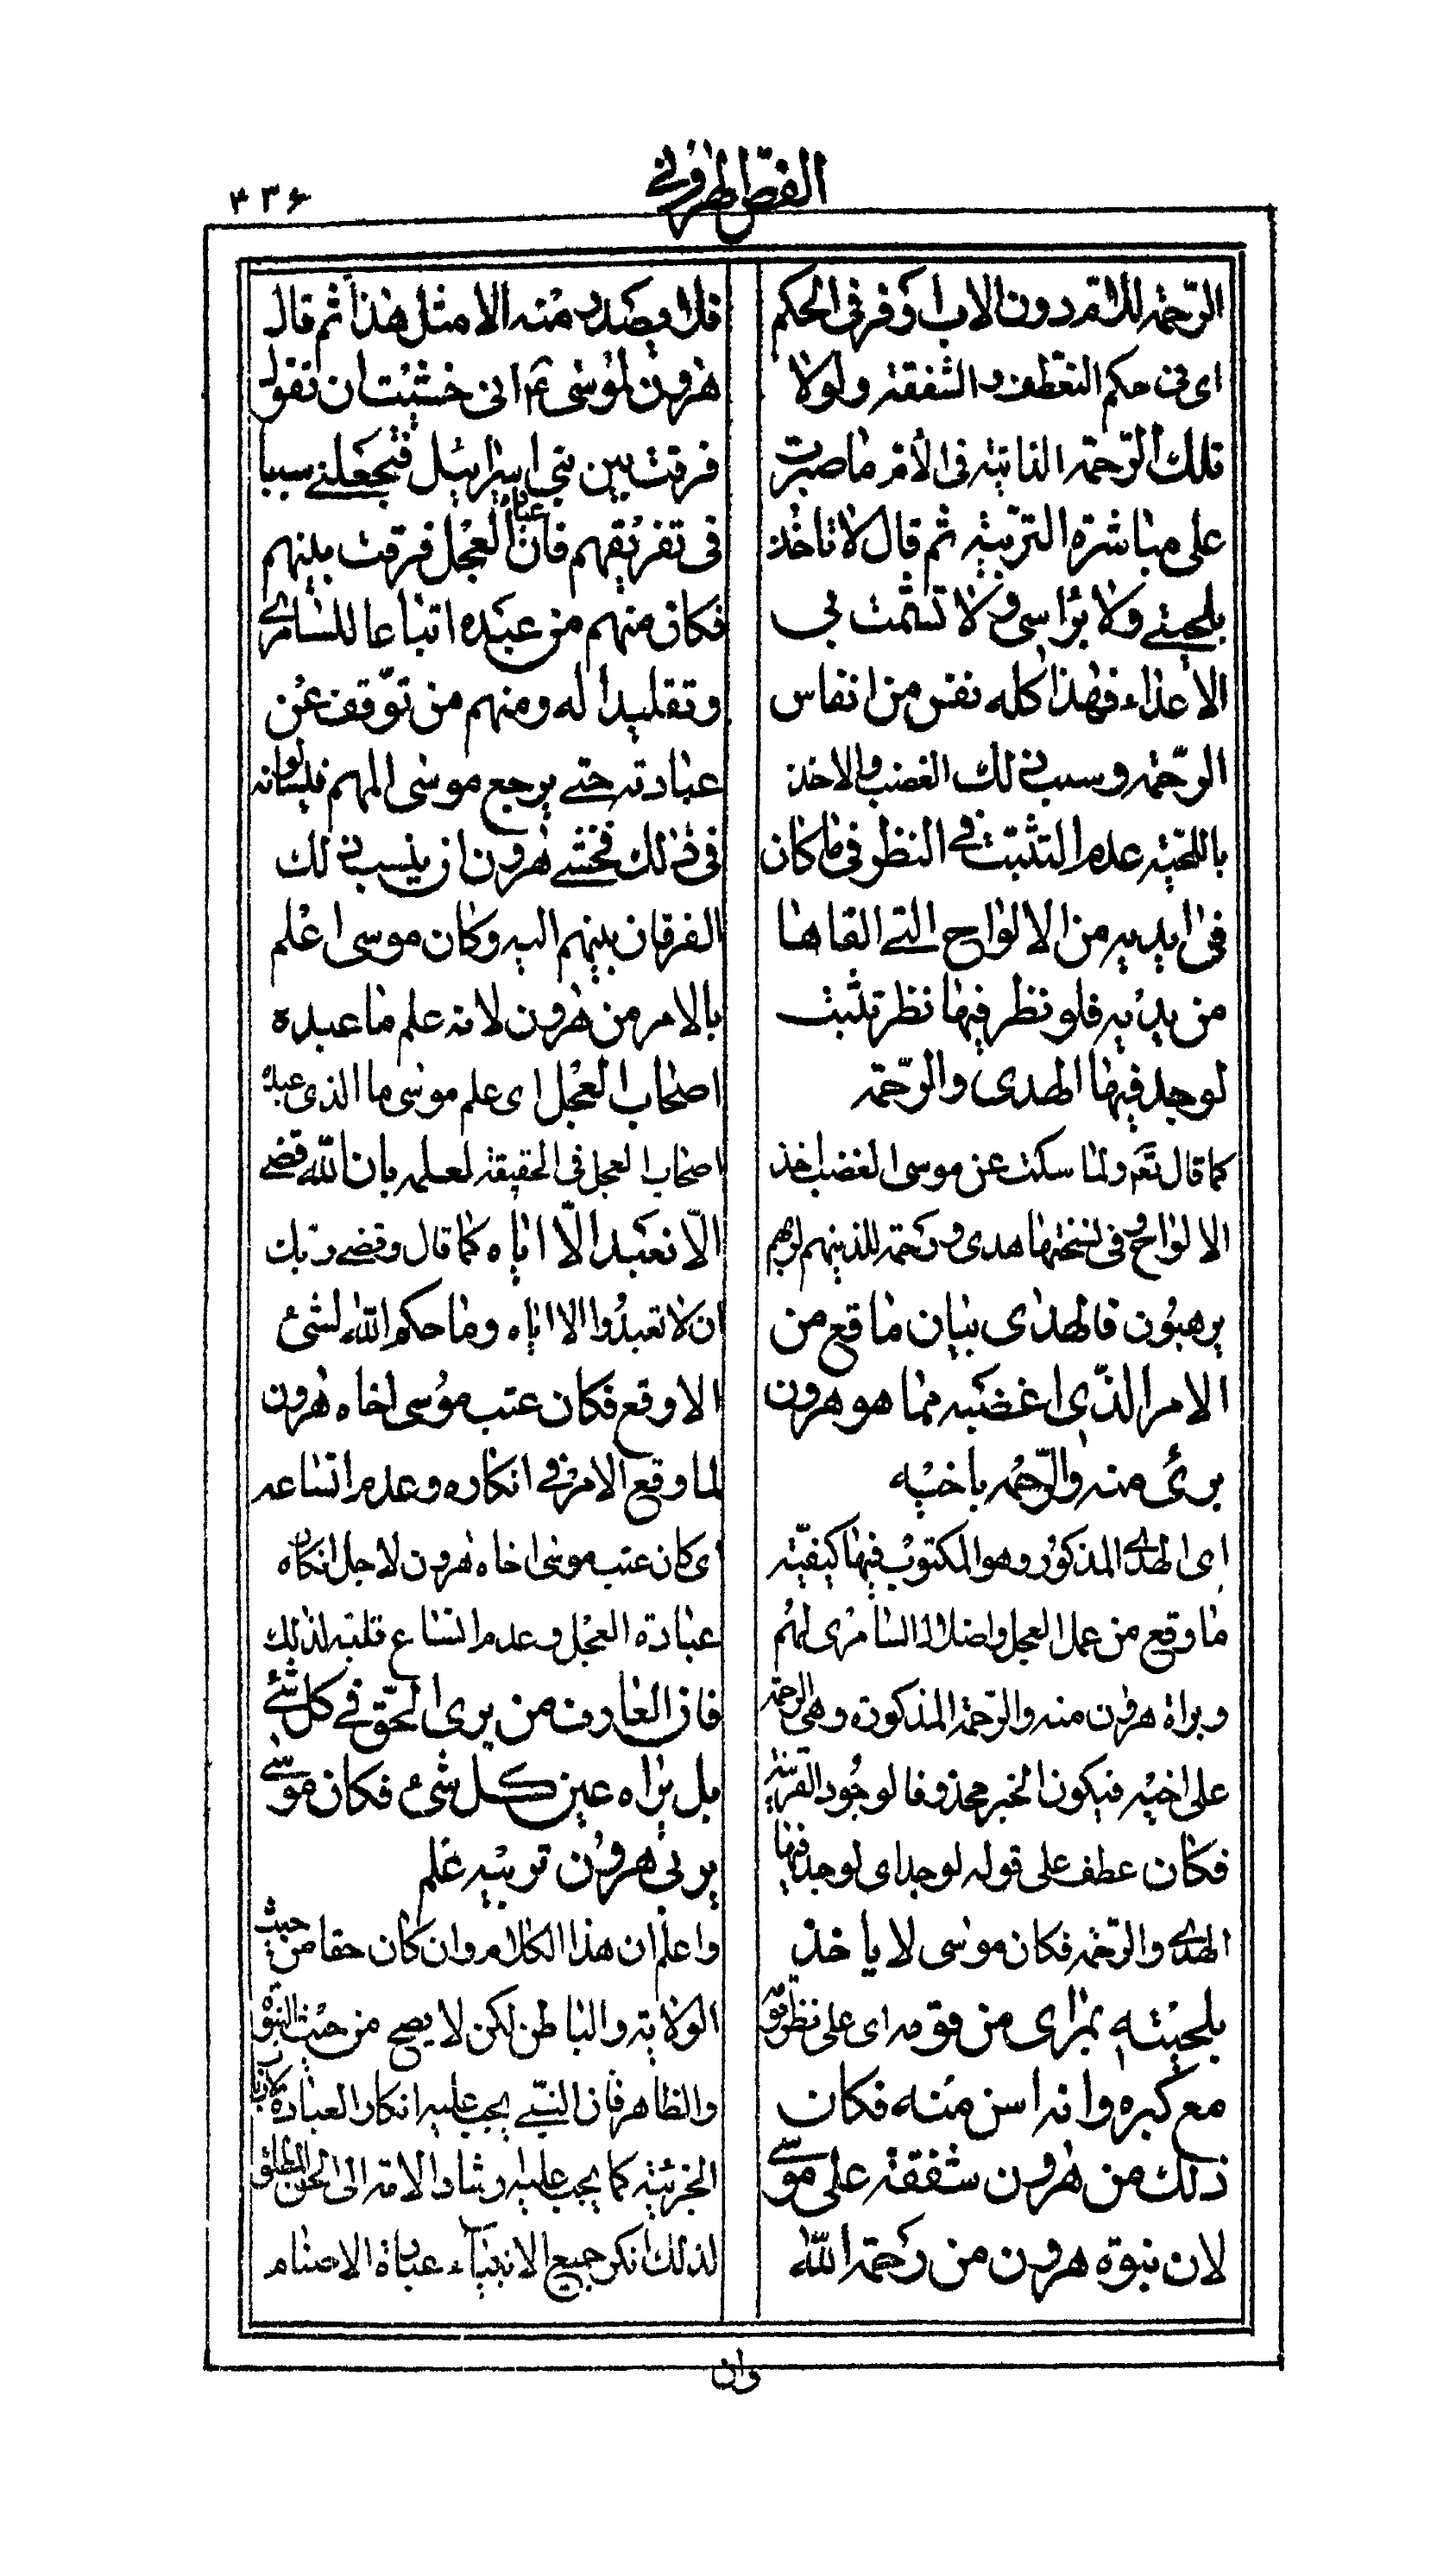 الفصّ الهروني
۴۳۶
الرّحمة للامّ دون الاب اوفر فى الحكم
اى فى حكم التعطف والشفقة ولولا
تلك الرّحمة الذاتية فى الأمّ ما صبرت
على مباشرة التربية ثم قال لا تأخذ
بلحيتى ولا برأسى ولا تشمت بى
الاعداء فهذا كله نفس من انفاس
الرّحمة وسبب ذلك الغضب والاخذ
باللحية عدم التثبت فى النظر فى ما كان
فى ايديه من الالواح التى القاها
من يديه فلو نظر فيها نظر تثبت
لوجد فيها الهدى والرّحمة
كما قال تعم ولما سكت عن موسى الغضب اخذ
الالواح وفى نسختها هدى ورحمة للذين هم لربهم
يرهبون فالهدى بيان ما وقع من
الامر الذى اغضبه مما هو هرون
برىء منه والرّحمه باخيه
اى الهدى المذكور وهو المكتوب فيها كيفيّة
ما وقع من عمل العجل واضلال السامرى لهم
وبراة هرون منه والرّحمة المذكورة وهى الرحمة
على اخيه فيكون الخبر محذوفا لوجود القرينة
فكان عطف على قوله لوجد اى لوجد فيها
الهدى والرّحمة فكان موسى لا ياخذ
بلحيته بمراى من قومه اى على نظر قومه
مع كبره وانه اسن منه فكان
ذلك من هرون شفقة على موسى
لان نبوة هرون من رحمة اللّه
فلا يصدر منه الا مثل هذا ثم قال
هرون لموسى ع انى خشيت ان تقول
فرقت بين بنى اسرائيل فتجعلنى سببا
فى تفريقهم فان عبادة العجل فرقت بينهم
فكان منهم من عبده اتباعا للسامرى
وتقليدا له ومنهم من توّقف عن
عبادته حتى يرجع موسى اليهم فيسألونه
فى ذلك فخشى هرون ان ينسب ذلك
الفرقان بينهم اليه وكان موسى اعلم
بالامر من هرون لانه علم ما عبده
اصحاب العجل اى علم موسى ما الذى عبده
اصحاب العجل فى الحقيقة لعلمه بان اللّه قضى
الّا نعبد الّا اياه كما قال وقضى ربّك
ان لا تعبدوا الا اياه وما حكم اللّه لشئ
الا وقع فكان عتب موسى اخاه هرون
لما وقع الامر فى انكاره وعدم اتساعه
اى كان عتب موسى اخاه هرون لاجل انكاره
عبادة العجل وعدم اتساع قلبه لذلك
فان العارف من يرى الحّق فى كل شئ
بل يراه عين كل شئ فكان موسى
يربى هرون تربية علم
واعلم ان هذا الكلام وان كان حقا من حيث
الولاية والباطن لكن لا يصح من حيث النبوة
والظاهر فان النبىّ يجب عليه انكار العبادة للارباب
الجزئية كما يجب عليه ارشاد الامة الى الحق المطلق
لذلك انكر جميع الانبياء عبادة الاصنام
وان